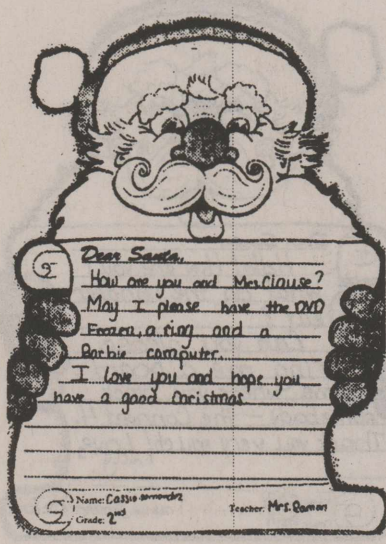 Dear Santa,
How are you and Mrs. Clause?
May I please have the DVD
Frozen, a ring and a
Barbie computer.
I love you and hope you
have a good Christmas.
Name: Cassie
Teacher: Mrs. Ramon
Grade: 2nd